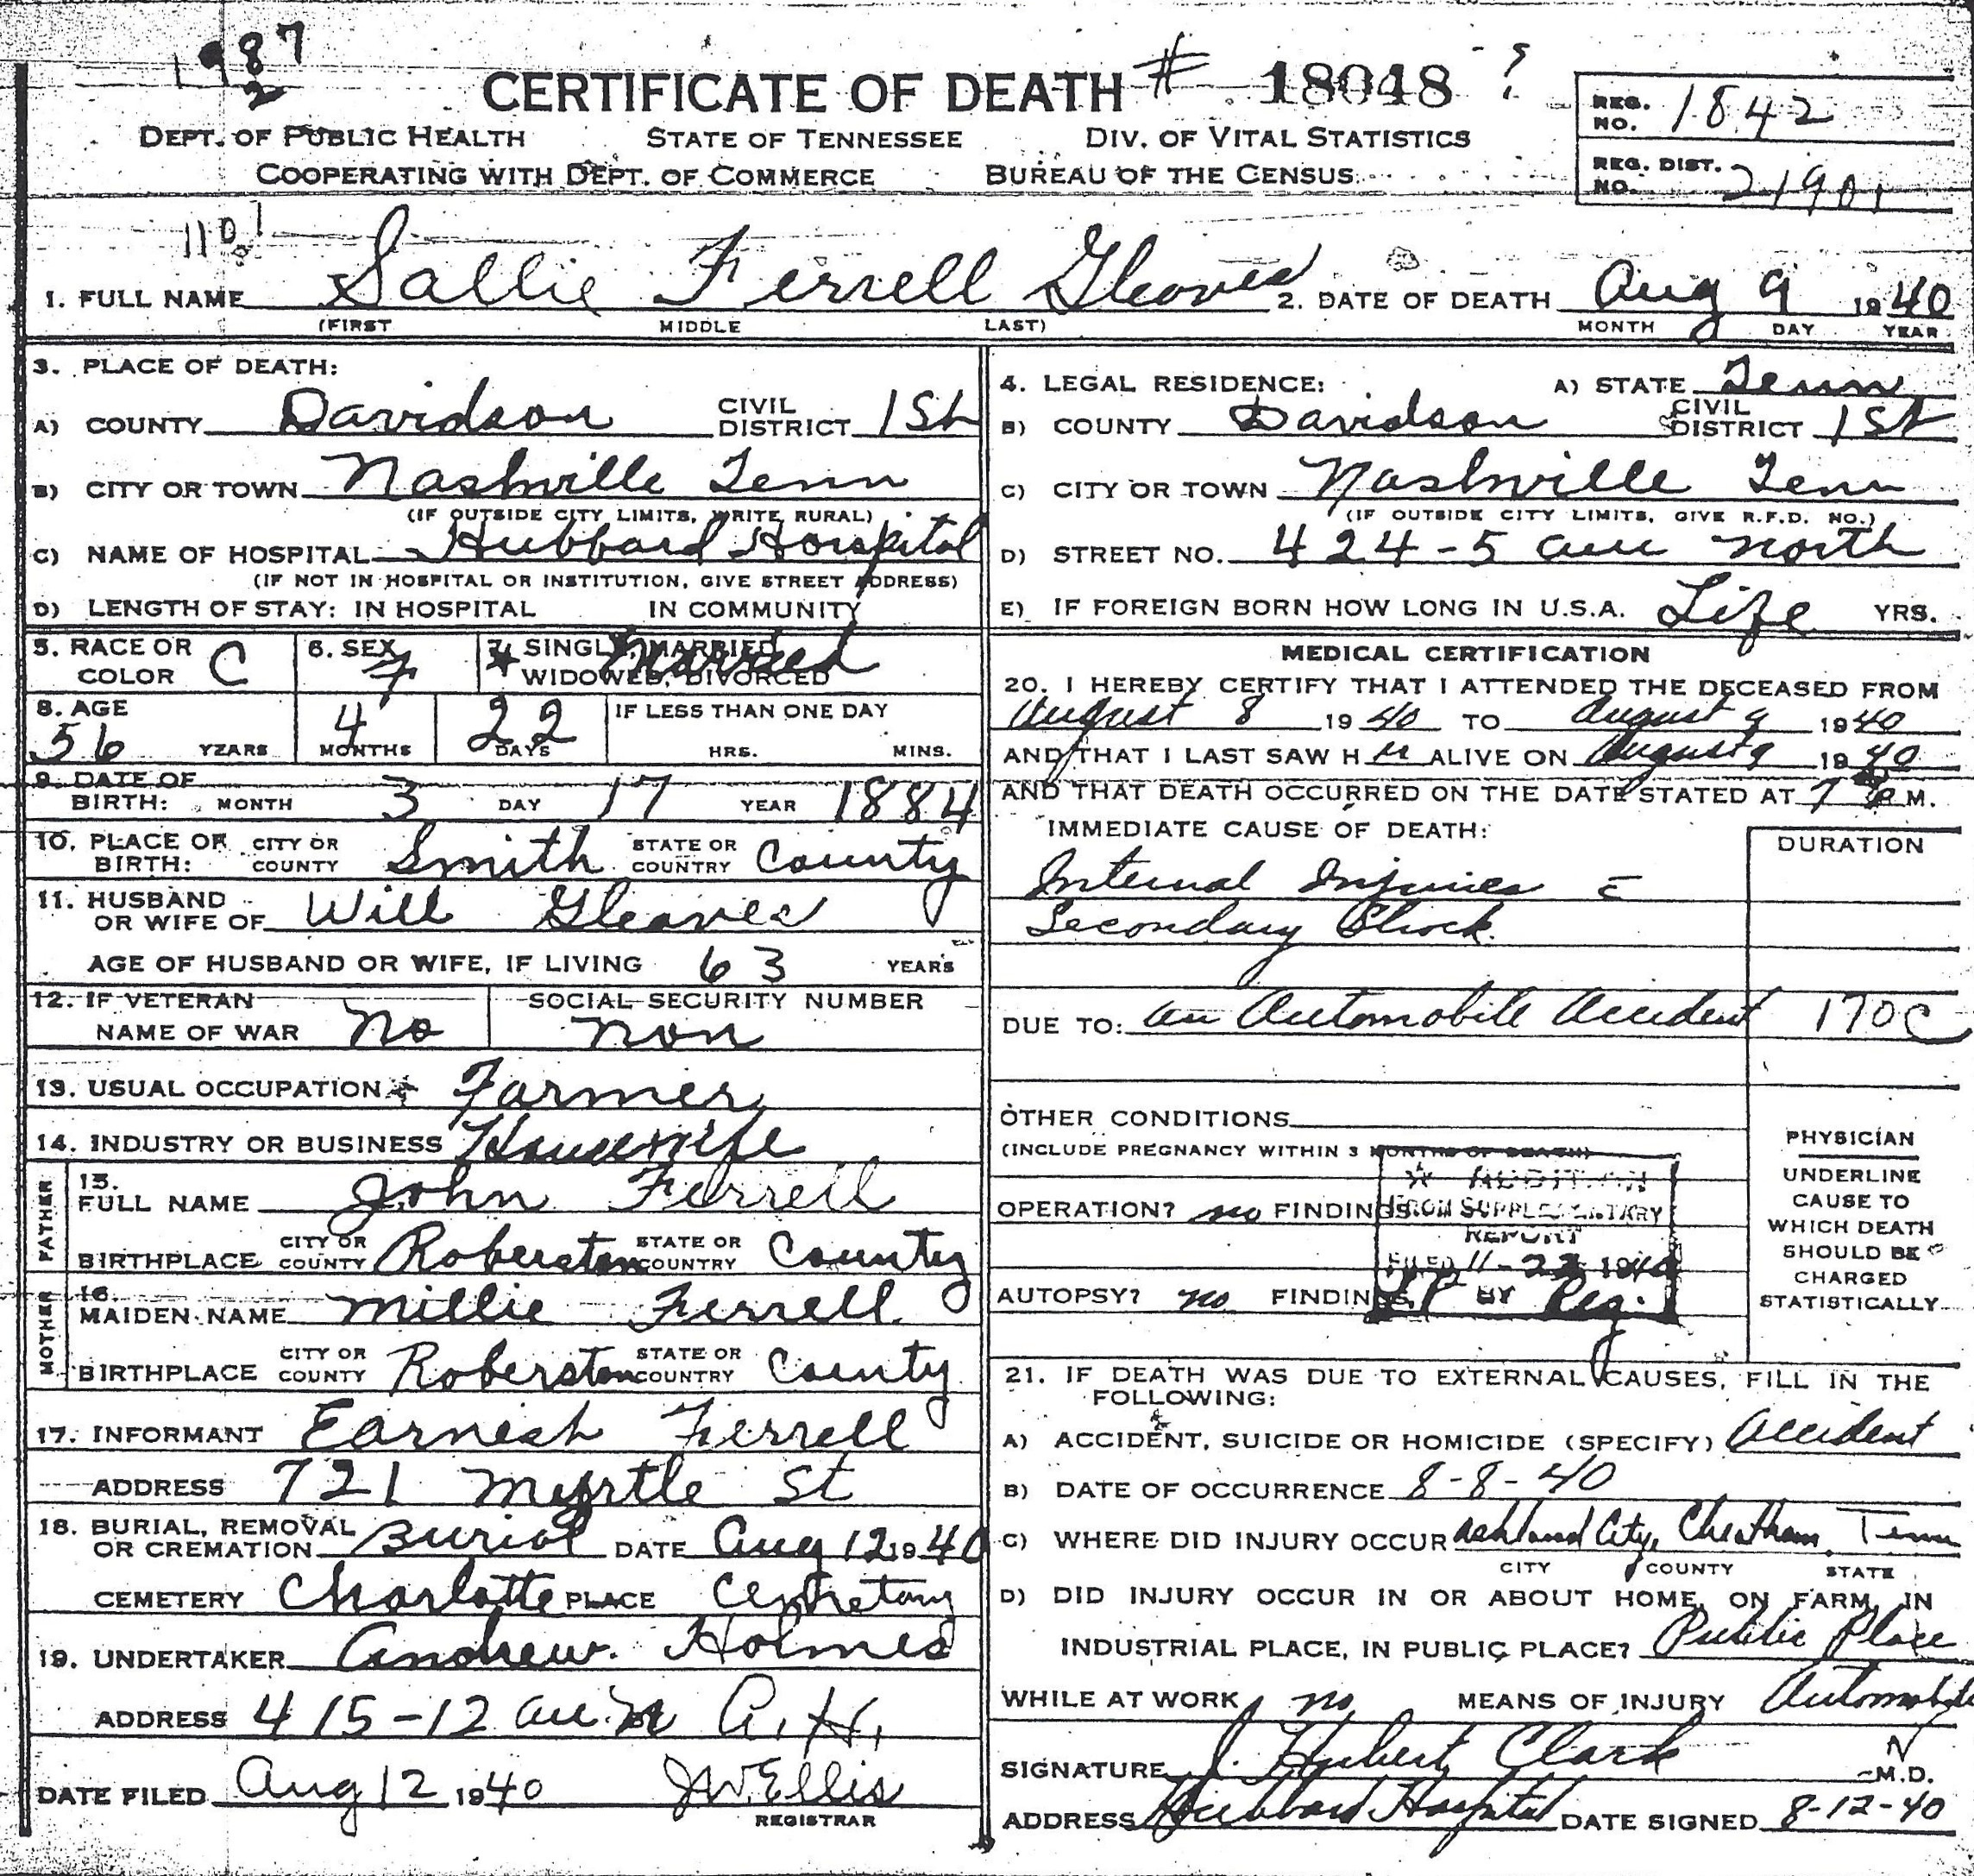 1987
2
CERTIFICATE OF DEATH # 18048 ?
REG. NO. 1842
DEPT. OF PUBLIC HEALTH STATE OF TENNESSEE DIV. OF VITAL STATISTICS
COOPERATING WITH DEPT. OF COMMERCE BUREAU OF THE CENSUS
REG. DIST. NO. 21901
1. FULL NAME Sallie Ferrell Gleaves 2. DATE OF DEATH Aug 9 1940
(FIRST MIDDLE LAST) MONTH DAY YEAR
3. PLACE OF DEATH:
A) COUNTY Davidson CIVIL DISTRICT 1st
B) CITY OR TOWN Nashville Tenn
(IF OUTSIDE CITY LIMITS, WRITE RURAL)
C) NAME OF HOSPITAL Hubbard Hospital
(IF NOT IN HOSPITAL OR INSTITUTION, GIVE STREET ADDRESS)
D) LENGTH OF STAY: IN HOSPITAL IN COMMUNITY
5. RACE OR COLOR C 6. SEX F 7. SINGLE, MARRIED, WIDOWED, DIVORCED Married
8. AGE 56 YEARS 4 MONTHS 22 DAYS IF LESS THAN ONE DAY HRS. MINS.
9. DATE OF BIRTH: MONTH 3 DAY 17 YEAR 1884
10. PLACE OF BIRTH: CITY OR COUNTY Smith STATE OR COUNTRY County
11. HUSBAND OR WIFE OF Will Gleaves
AGE OF HUSBAND OR WIFE, IF LIVING 63 YEARS
12. IF VETERAN NAME OF WAR No SOCIAL SECURITY NUMBER non
13. USUAL OCCUPATION Farmer
14. INDUSTRY OR BUSINESS Housewife
FATHER
15. FULL NAME John Ferrell
BIRTHPLACE CITY OR COUNTY Roberston STATE OR COUNTRY County
MOTHER
16. MAIDEN NAME Millie Ferrell
BIRTHPLACE CITY OR COUNTY Roberston STATE OR COUNTRY County
17. INFORMANT Earnest Ferrell
ADDRESS 721 Myrtle St
18. BURIAL, REMOVAL OR CREMATION Burial DATE Aug 12 1940
CEMETERY Charlotte PLACE Cemetary
19. UNDERTAKER Andrew Holmes
ADDRESS 415-12 ave. N A. H.
DATE FILED Aug 12 1940 JW Ellis
REGISTRAR
4. LEGAL RESIDENCE: A) STATE Tenn
B) COUNTY Davidson CIVIL DISTRICT 1st
C) CITY OR TOWN Nashville Tenn
(IF OUTSIDE CITY LIMITS, GIVE R.F.D. NO.)
D) STREET NO. 424-5 ave North
E) IF FOREIGN BORN HOW LONG IN U.S.A. Life YRS.
MEDICAL CERTIFICATION
20. I HEREBY CERTIFY THAT I ATTENDED THE DECEASED FROM
August 8 1940 TO August 9 1940
AND THAT I LAST SAW H er ALIVE ON August 9 1940
AND THAT DEATH OCCURRED ON THE DATE STATED AT 7 P M.
IMMEDIATE CAUSE OF DEATH: DURATION
Internal Injuries c
Secondary Shock.
DUE TO: an Automobile Accident 170C
OTHER CONDITIONS
(INCLUDE PREGNANCY WITHIN 3 MONTHS OF DEATH)
OPERATION? no FINDINGS
AUTOPSY? no FINDINGS
☆ ADDITION
FROM SUPPLEMENTARY
REPORT
FILED 11-22 1940
BY Reg.
PHYSICIAN
UNDERLINE
CAUSE TO
WHICH DEATH
SHOULD BE
CHARGED
STATISTICALLY
21. IF DEATH WAS DUE TO EXTERNAL CAUSES, FILL IN THE
FOLLOWING:
A) ACCIDENT, SUICIDE OR HOMICIDE (SPECIFY) Accident
B) DATE OF OCCURRENCE 8-8-40
C) WHERE DID INJURY OCCUR Ashland City, Cheatham, Tenn
CITY COUNTY STATE
D) DID INJURY OCCUR IN OR ABOUT HOME, ON FARM, IN
INDUSTRIAL PLACE, IN PUBLIC PLACE? Public Place
WHILE AT WORK no MEANS OF INJURY Automobile
SIGNATURE J. Hubert Clark M.D.
ADDRESS Hubbard Hospital DATE SIGNED 8-12-40